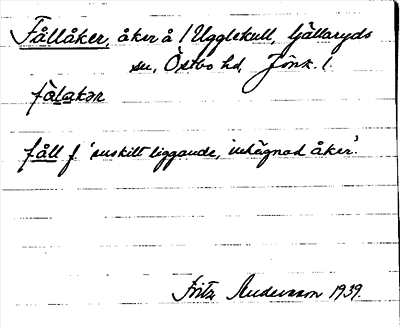 Fållåker, åker å Ugglekull, Gällaryds
sn, Östbo hd, Jönk. l.
fålakər
fåll f. 'enskilt liggande, inhägnad åker'.
Fritz Andersson 1939.